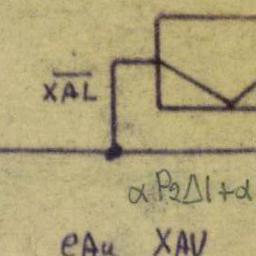 X̅A̅L̅
αP₂Δ1+α
eAu XAV